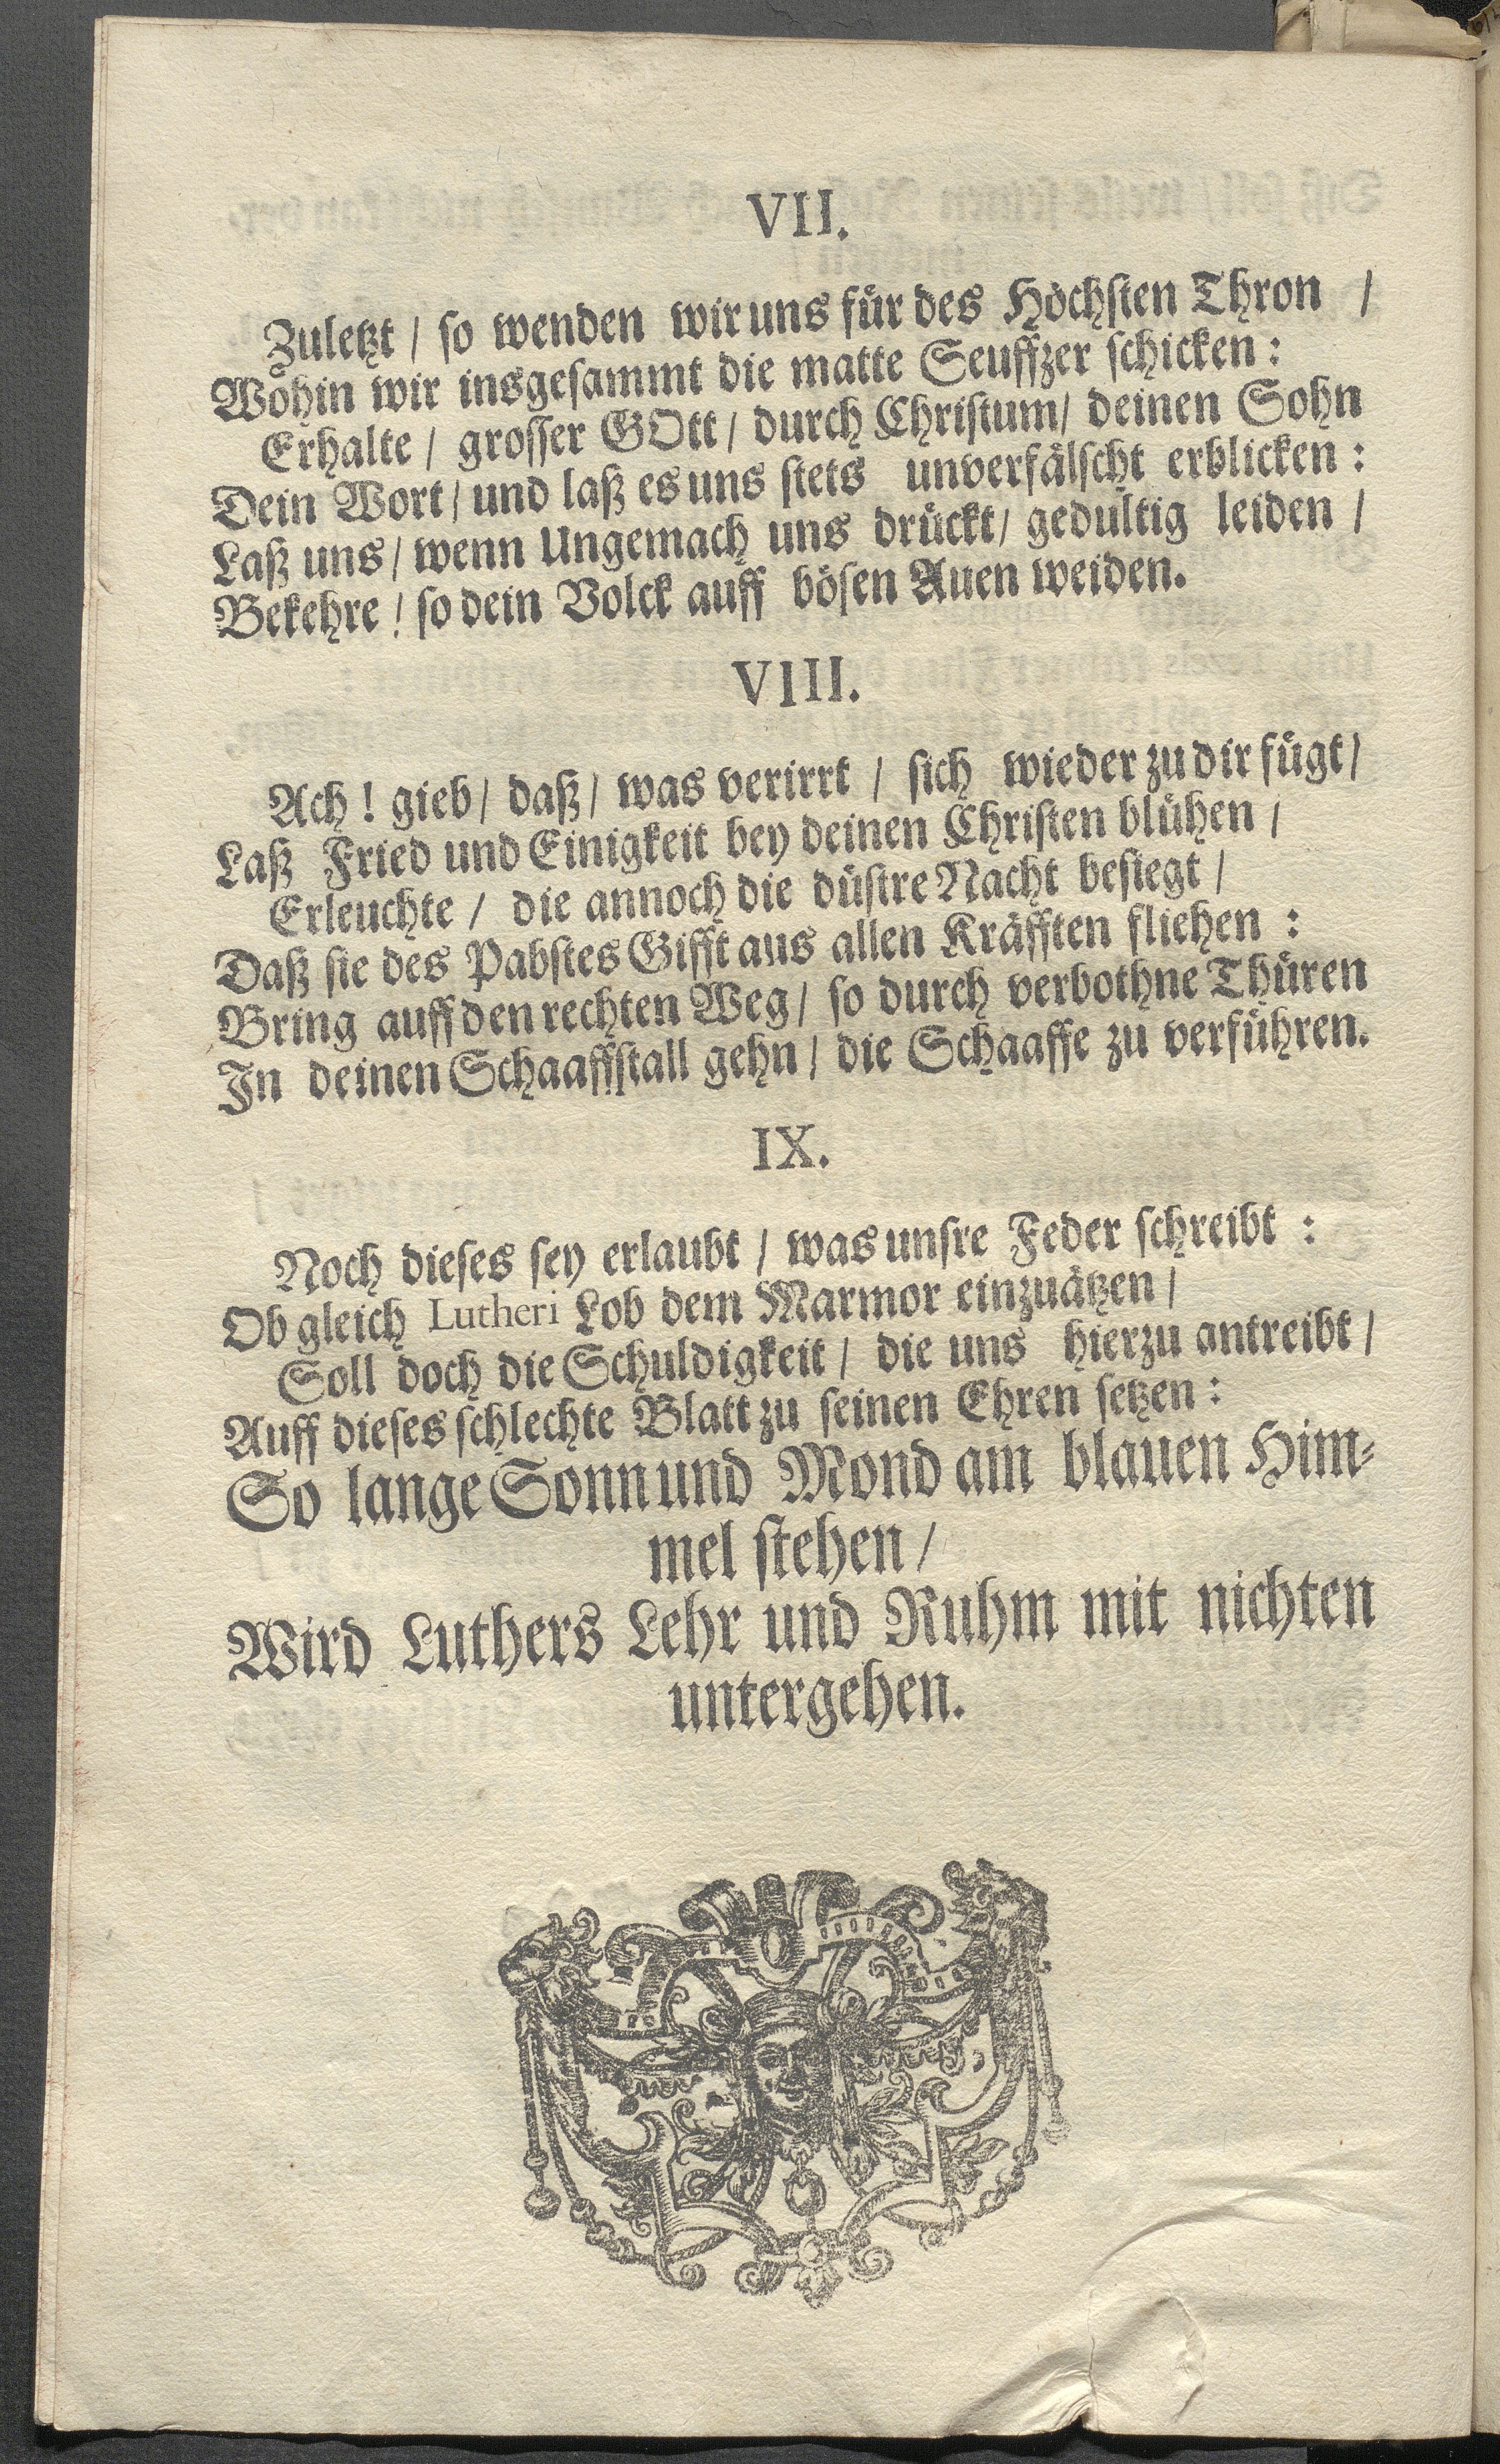 VII.
Zuletzt / ſo wenden wir uns fuͤr des Hoͤchſten Thron /
Wohin wir insgeſammt die matte Seuffzer ſchicken :
Erhalte / groſſer GOtt / durch Chriſtum / deinen Sohn
Dein Wort / und laß es uns ſtets unverfaͤlſcht erblicken :
Laß uns / wenn Ungemach uns druͤckt / gedultig leiden /
Bekehre / ſo dein Volck auff boͤſen Auen weiden.
VIII.
Ach ! gieb / daß / was verirrt / ſich wieder zu dir fuͤgt /
Laß Fried und Einigkeit bey deinen Chriſten bluͤhen /
Erleuchte / die annoch die duͤſtre Nacht beſiegt /
Daß ſie des Pabſtes Gifft aus allen Kraͤfften fliehen :
Bring auff den rechten Weg / ſo durch verbothne Thuͤren
In deinen Schaaffſtall gehn / die Schaaffe zu verfuͤhren.
IX.
Noch dieſes ſey erlaubt / was unſre Feder ſchreibt :
Ob gleich Lutheri Lob dem Marmor einzuaͤtzen /
Soll doch die Schuldigkeit / die uns hierzu antreibt /
Auff dieſes ſchlechte Blatt zu ſeinen Ehren ſetzen :
So lange Sonn und Mond am blauen Him⸗
mel ſtehen /
Wird Luthers Lehr und Ruhm mit nichten
untergehen.